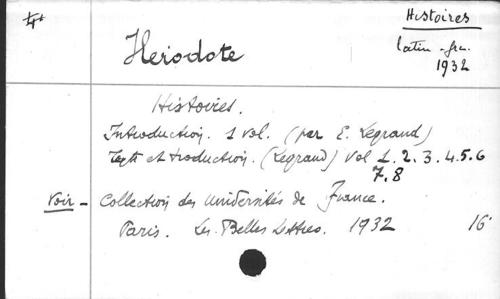 Histoires
latin-fra.
1932
Herodote
Histoires.
Introduction. 1 vol. (par E. Legrand)
Texte et traduction. (Legrand) Vol 1. 2. 3. 4. 5. 6
7. 8
voir - Collection des Universités de France.
Paris. Les Belles Lettres. 1932 16°